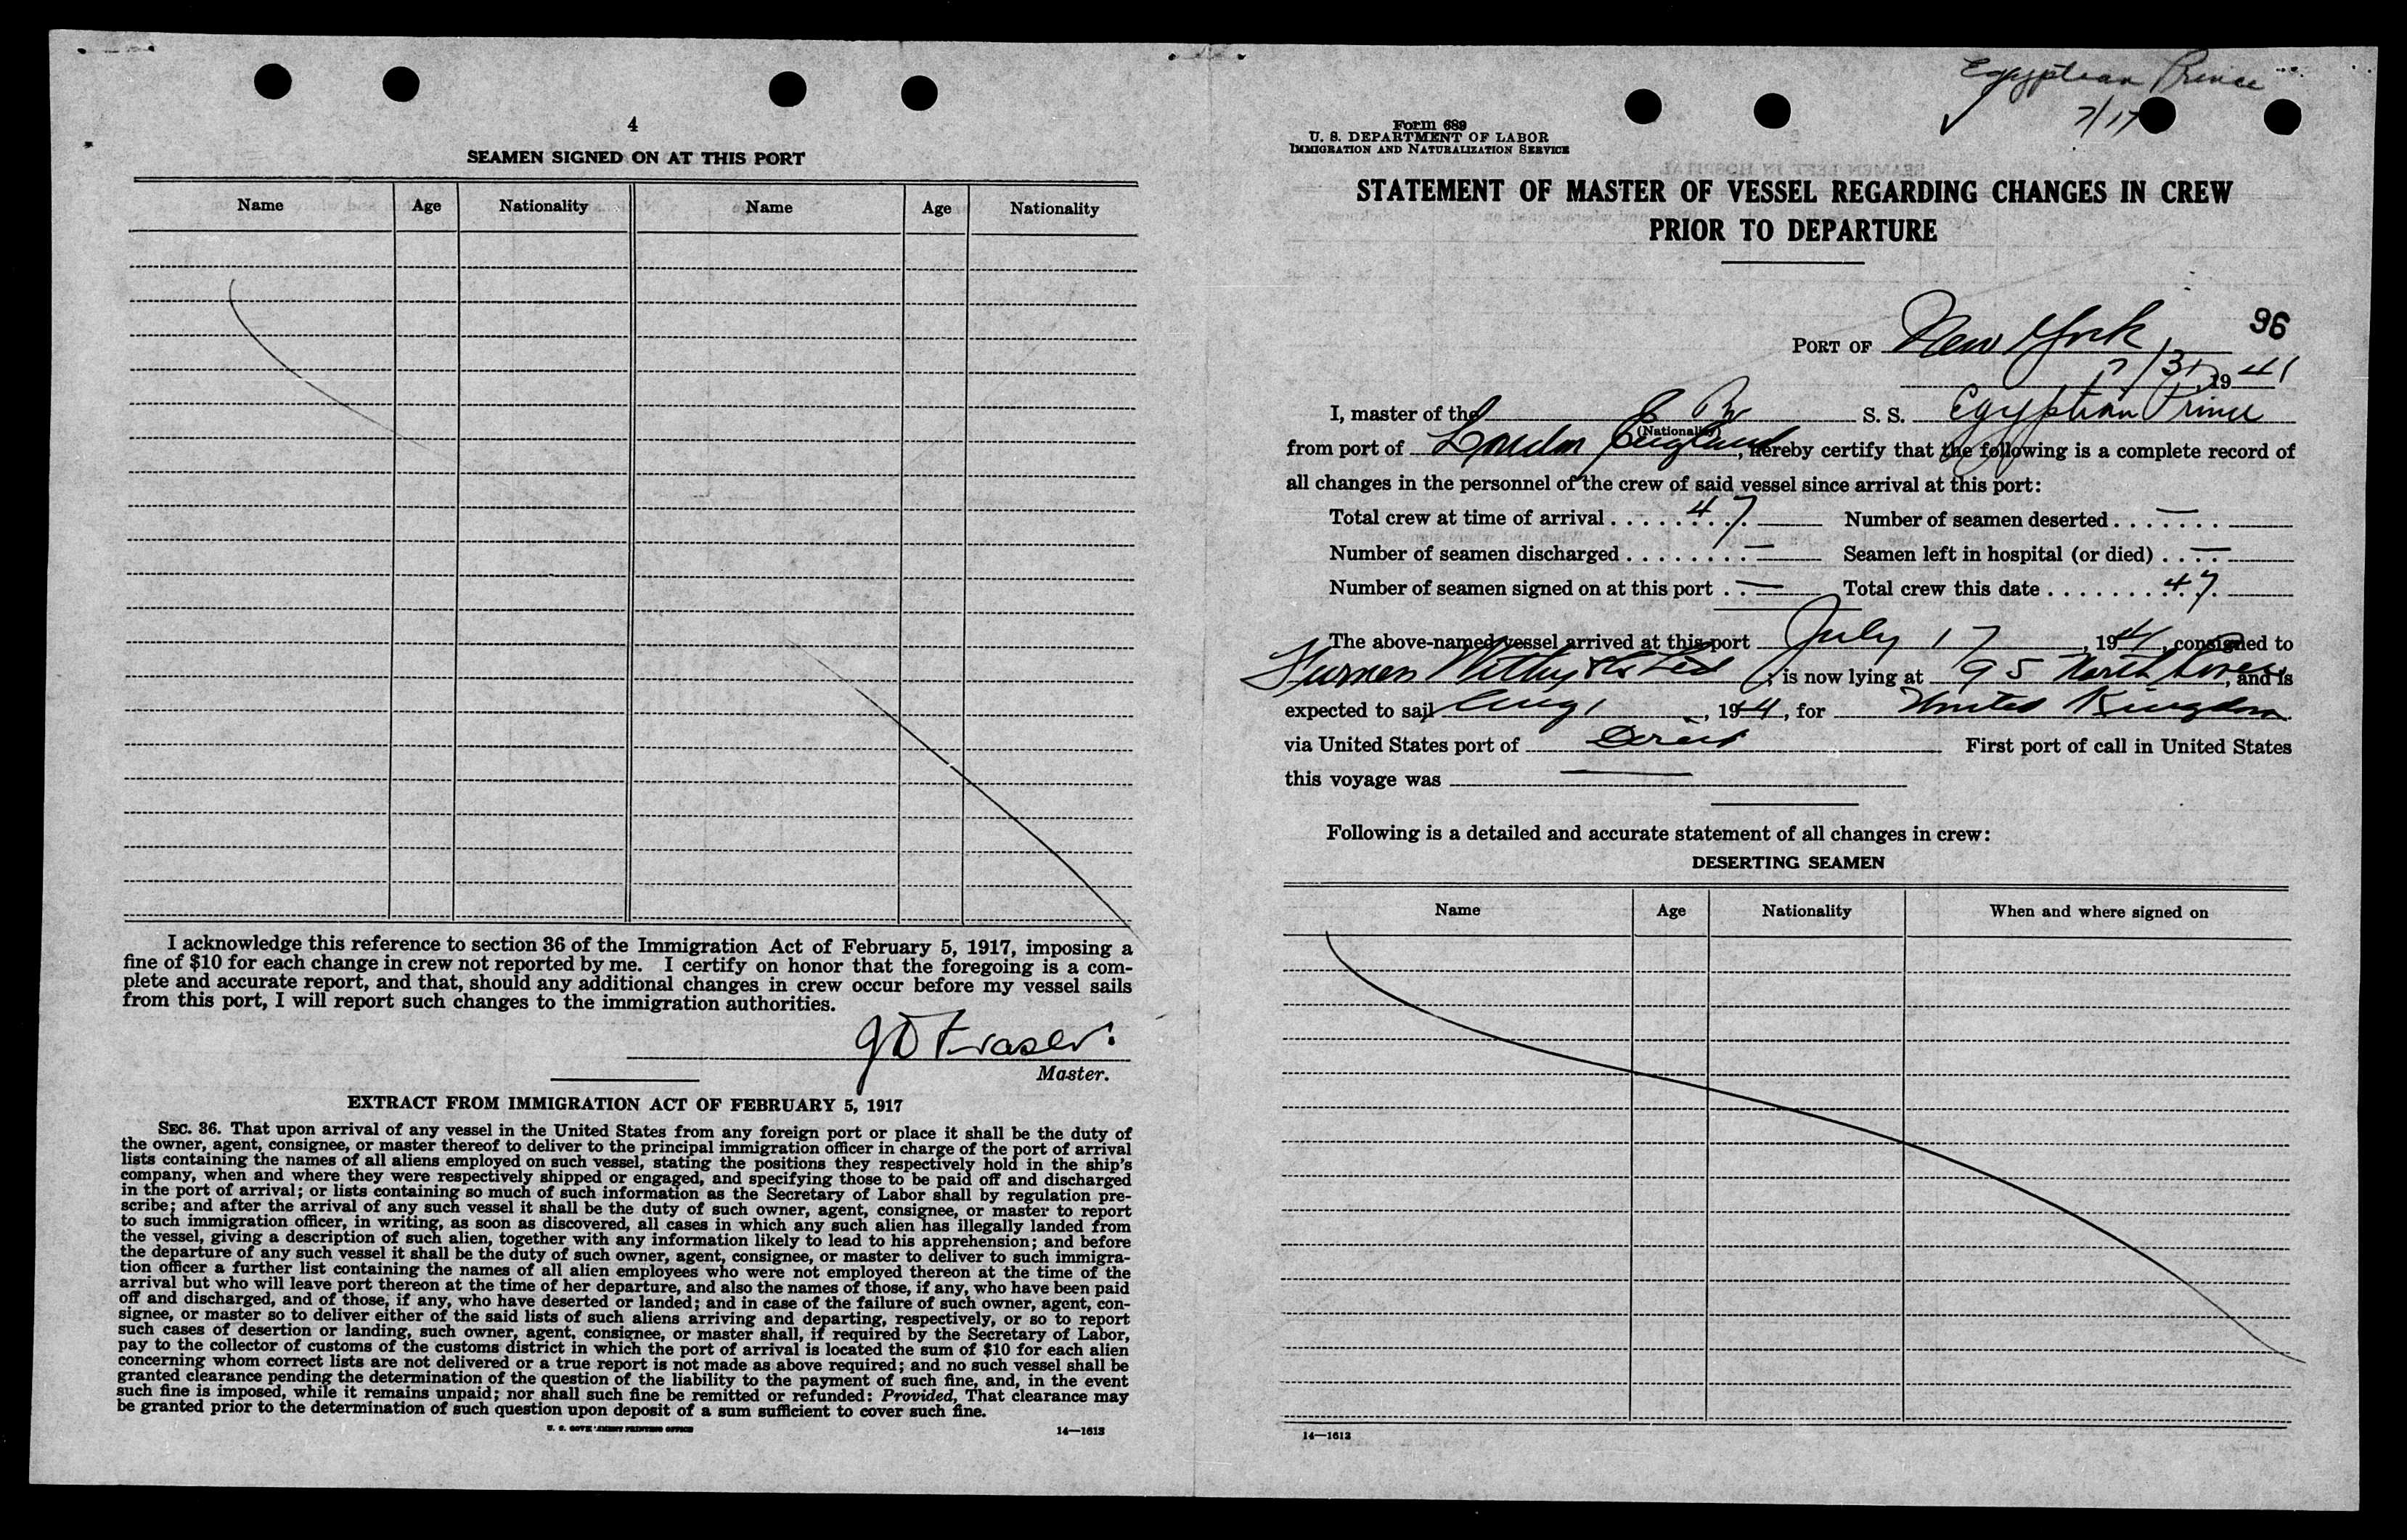 4
SEAMEN SIGNED ON AT THIS PORT
Name Age Nationality Name Age Nationality
I acknowledge this reference to section 36 of the Immigration Act of February 5, 1917, imposing a
fine of $10 for each change in crew not reported by me. I certify on honor that the foregoing is a com-
plete and accurate report, and that, should any additional changes in crew occur before my vessel sails
from this port, I will report such changes to the immigration authorities.
J D Fraser.
Master.
EXTRACT FROM IMMIGRATION ACT OF FEBRUARY 5, 1917
SEC. 36. That upon arrival of any vessel in the United States from any foreign port or place it shall be the duty of
the owner, agent, consignee, or master thereof to deliver to the principal immigration officer in charge of the port of arrival
lists containing the names of all aliens employed on such vessel, stating the positions they respectively hold in the ship's
company, when and where they were respectively shipped or engaged, and specifying those to be paid off and discharged
in the port of arrival; or lists containing so much of such information as the Secretary of Labor shall by regulation pre-
scribe; and after the arrival of any such vessel it shall be the duty of such owner, agent, consignee, or master to report
to such immigration officer, in writing, as soon as discovered, all cases in which any such alien has illegally landed from
the vessel, giving a description of such alien, together with any information likely to lead to his apprehension; and before
the departure of any such vessel it shall be the duty of such owner, agent, consignee, or master to deliver to such immigra-
tion officer a further list containing the names of all alien employees who were not employed thereon at the time of the
arrival but who will leave port thereon at the time of her departure, and also the names of those, if any, who have been paid
off and discharged, and of those, if any, who have deserted or landed; and in case of the failure of such owner, agent, con-
signee, or master so to deliver either of the said lists of such aliens arriving and departing, respectively, or so to report
such cases of desertion or landing, such owner, agent, consignee, or master shall, if required by the Secretary of Labor,
pay to the collector of customs of the customs district in which the port of arrival is located the sum of $10 for each alien
concerning whom correct lists are not delivered or a true report is not made as above required; and no such vessel shall be
granted clearance pending the determination of the question of the liability to the payment of such fine, and, in the event
such fine is imposed, while it remains unpaid; nor shall such fine be remitted or refunded: Provided, That clearance may
be granted prior to the determination of such question upon deposit of a sum sufficient to cover such fine.
U. S. GOVERNMENT PRINTING OFFICE 14—1613
Egyptian Prince
7/17
Form 689
U. S. DEPARTMENT OF LABOR
IMMIGRATION AND NATURALIZATION SERVICE
STATEMENT OF MASTER OF VESSEL REGARDING CHANGES IN CREW
PRIOR TO DEPARTURE
96
PORT OF New York
7/31, 1941
I, master of the Br S. S. Egyptian Prince
(Nationality)
from port of London England, hereby certify that the following is a complete record of
all changes in the personnel of the crew of said vessel since arrival at this port:
Total crew at time of arrival 47 Number of seamen deserted —
Number of seamen discharged — Seamen left in hospital (or died) —
Number of seamen signed on at this port — Total crew this date 47
The above-named vessel arrived at this port July 17, 1941, consigned to
Furness Withy & Co Ltd, is now lying at 95 North River, and is
expected to sail Aug 1, 1941, for United Kingdom
via United States port of Direct First port of call in United States
this voyage was —
Following is a detailed and accurate statement of all changes in crew:
DESERTING SEAMEN
Name Age Nationality When and where signed on
14—1613